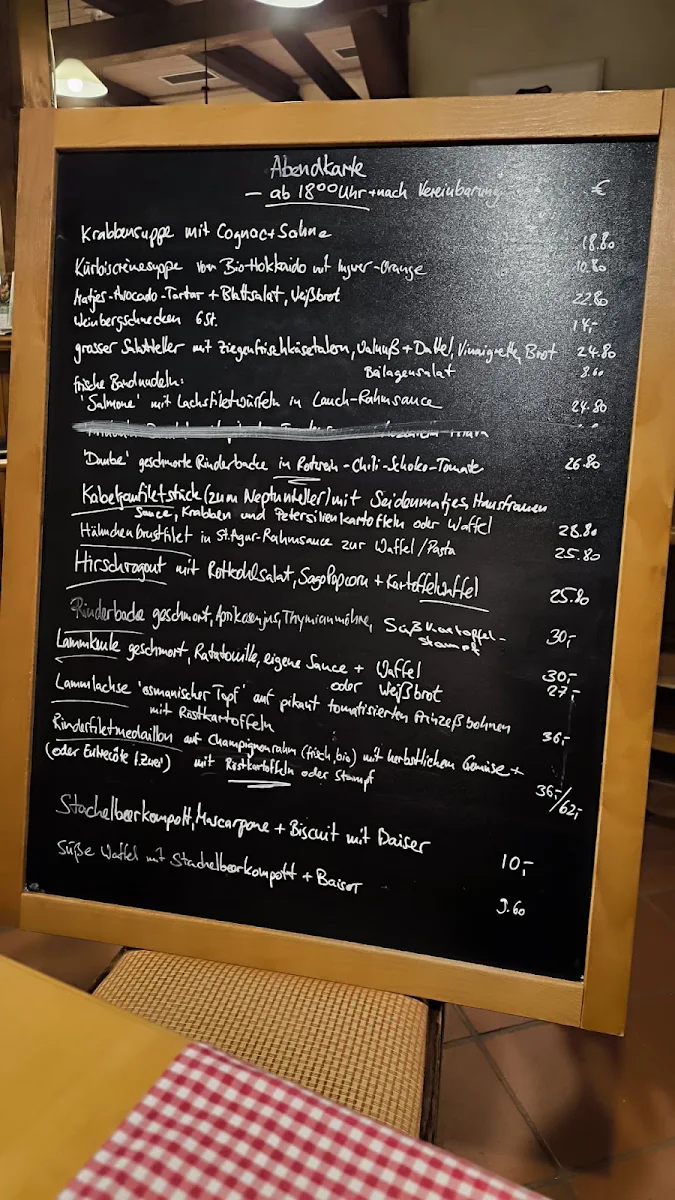 Abendkarte
– ab 18⁰⁰ Uhr + nach Vereinbarung €
Krabbensuppe mit Cognac + Sahne 18.80
Kürbiscremesuppe vom Bio-Hokkaido mit Ingwer-Orange 10.80
Matjes-Avocado-Tartar + Blattsalat, Weißbrot 22.80
Weinbergschnecken 6 St. 14,-
grosser Salatteller mit Ziegenfrischkäsetalern, Walnuß + Dattel, Vinaigrette, Brot 24.80
Beilagensalat 8.60
frische Bandnudeln:
'Salmone' mit Lachsfiletwürfeln in Lauch-Rahmsauce 24.80
'Daube' geschmorte Rinderbacke in Rotwein-Chili-Schoko-Tomate 26.80
Kabeljaufiletstück (zum Neptunteller) mit Seidenmatjes, Hausfrauen
Sauce, Krabben und Petersilienkartoffeln oder Waffel 28.80
Hähnchenbrustfilet in St.Agur-Rahmsauce zur Waffel / Pasta 25.80
Hirschragout mit Rotkohlsalat, Sagopopcorn + Kartoffelwaffel 25.80
Rinderbacke geschmort, Aprikosenjus, Thymianmöhre, Süßkartoffel-
stampf 30,-
Lammkeule geschmort, Ratatouille, eigene Sauce + Waffel 30,-
oder Weißbrot 27,-
Lammlachse 'osmanischer Topf' auf pikant tomatisierten Prinzeßbohnen
mit Röstkartoffeln 36,-
Rinderfiletmedaillon auf Champignonrahm (frisch, bio) mit herbstlichem Gemüse +
(oder Entrecôte f. Zwei) mit Röstkartoffeln oder Stampf 36,-/62,-
Stachelbeerkompott, Mascarpone + Biscuit mit Baiser 10,-
Süße Waffel mit Stachelbeerkompott + Baiser 9.60